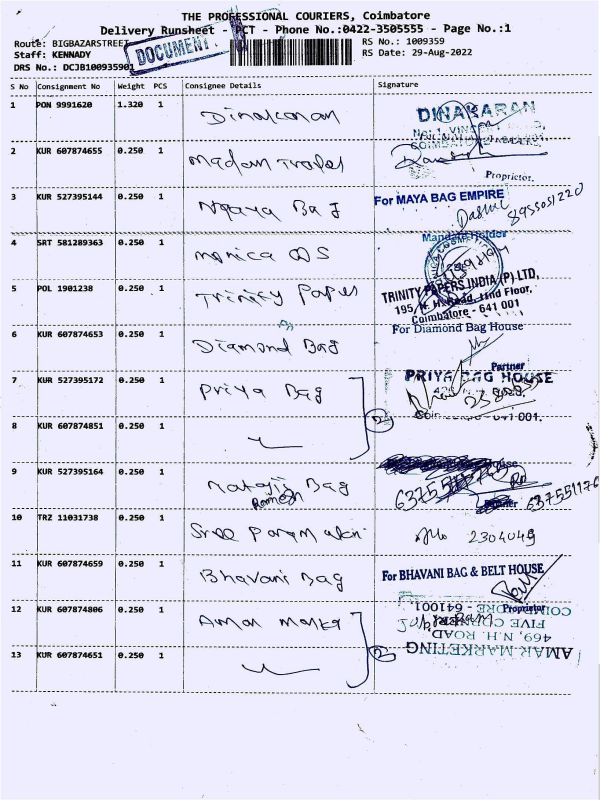 THE PROFESSIONAL COURIERS, Coimbatore
Delivery Runsheet - PCT - Phone No.:0422-3505555 - Page No.:1
Route: BIGBAZARSTREET
RS No.: 1009359
Staff: KENNADY
DOCUMENT
RS Date: 29-Aug-2022
DRS No.: DCJB100935901
S No Consignment No Weight PCS Consignee Details Signature
1 PON 9991620 1.320 1 Dinakaran DINAKARAN
2 KUR 607874655 0.250 1 Madam Trades
Proprietor.
3 KUR 527395144 0.250 1 Ngaya Bag For MAYA BAG EMPIRE
8955051220
Mandate Holder
4 SRT 581289363 0.250 1 monica QS
5 POL 1901238 0.250 1 Trinity Papes TRINITY PAPERS INDIA (P) LTD,
195, N. H. Road, IInd Floor,
Coimbatore - 641 001
6 KUR 607874653 0.250 1 Diamond Bag For Diamond Bag House
Partner
7 KUR 527395172 0.250 1 Priya Bag PRIYA BAG HOUSE
2
8 KUR 607874851 0.250 1
641 001.
9 KUR 527395164 0.250 1 Bag
Ramesh
10 TRZ 11031738 0.250 1 Sree 2304049
11 KUR 607874659 0.250 1 Bhavani Bag For BHAVANI BAG & BELT HOUSE
Proprietor
12 KUR 607874806 0.250 1 Amar
COIMBATORE - 641001
FIVE CORNER
469, N.H. ROAD
2
13 KUR 607874651 0.250 1 AMAR MARKETING